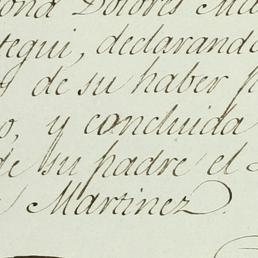 Dolores Ma
tegui, declarando
de su haber p
o, y concluida
de su padre el
Martinez.